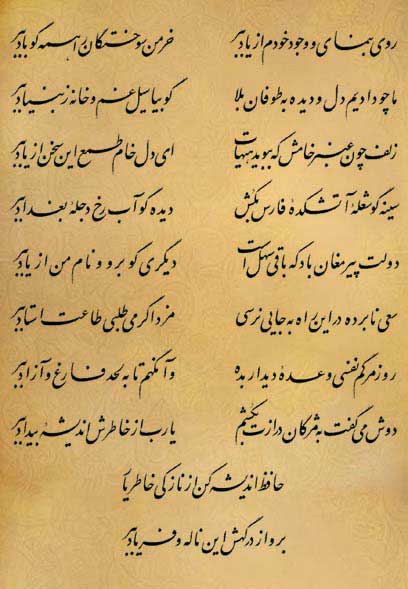 روی بنمای و وجود خودم از یاد ببر خرمن سوختگان را همه گو باد ببر
ما چو دادیم دل و دیده به طوفان بلا گو بیا سیل غم و خانه ز بنیاد ببر
زلف چون عنبر خامش که ببوید هیهات ای دل خام طمع این سخن از یاد ببر
سینه گو شعله آتشکده فارس بکش دیده گو آب رخ دجله بغداد ببر
دولت پیر مغان باد که باقی سهل است دیگری گو برو و نام من از یاد ببر
سعی نابرده در این راه به جایی نرسی مزد اگر می طلبی طاعت استاد ببر
روز مرگم نفسی وعده دیدار بده وآنگهم تا به لحد فارغ و آزاد ببر
دوش می‌گفت به مژگان درازت بکشم یا رب از خاطرش اندیشه بیداد ببر
حافظ اندیشه کن از نازکی خاطر یار
برو از درگهش این ناله و فریاد ببر